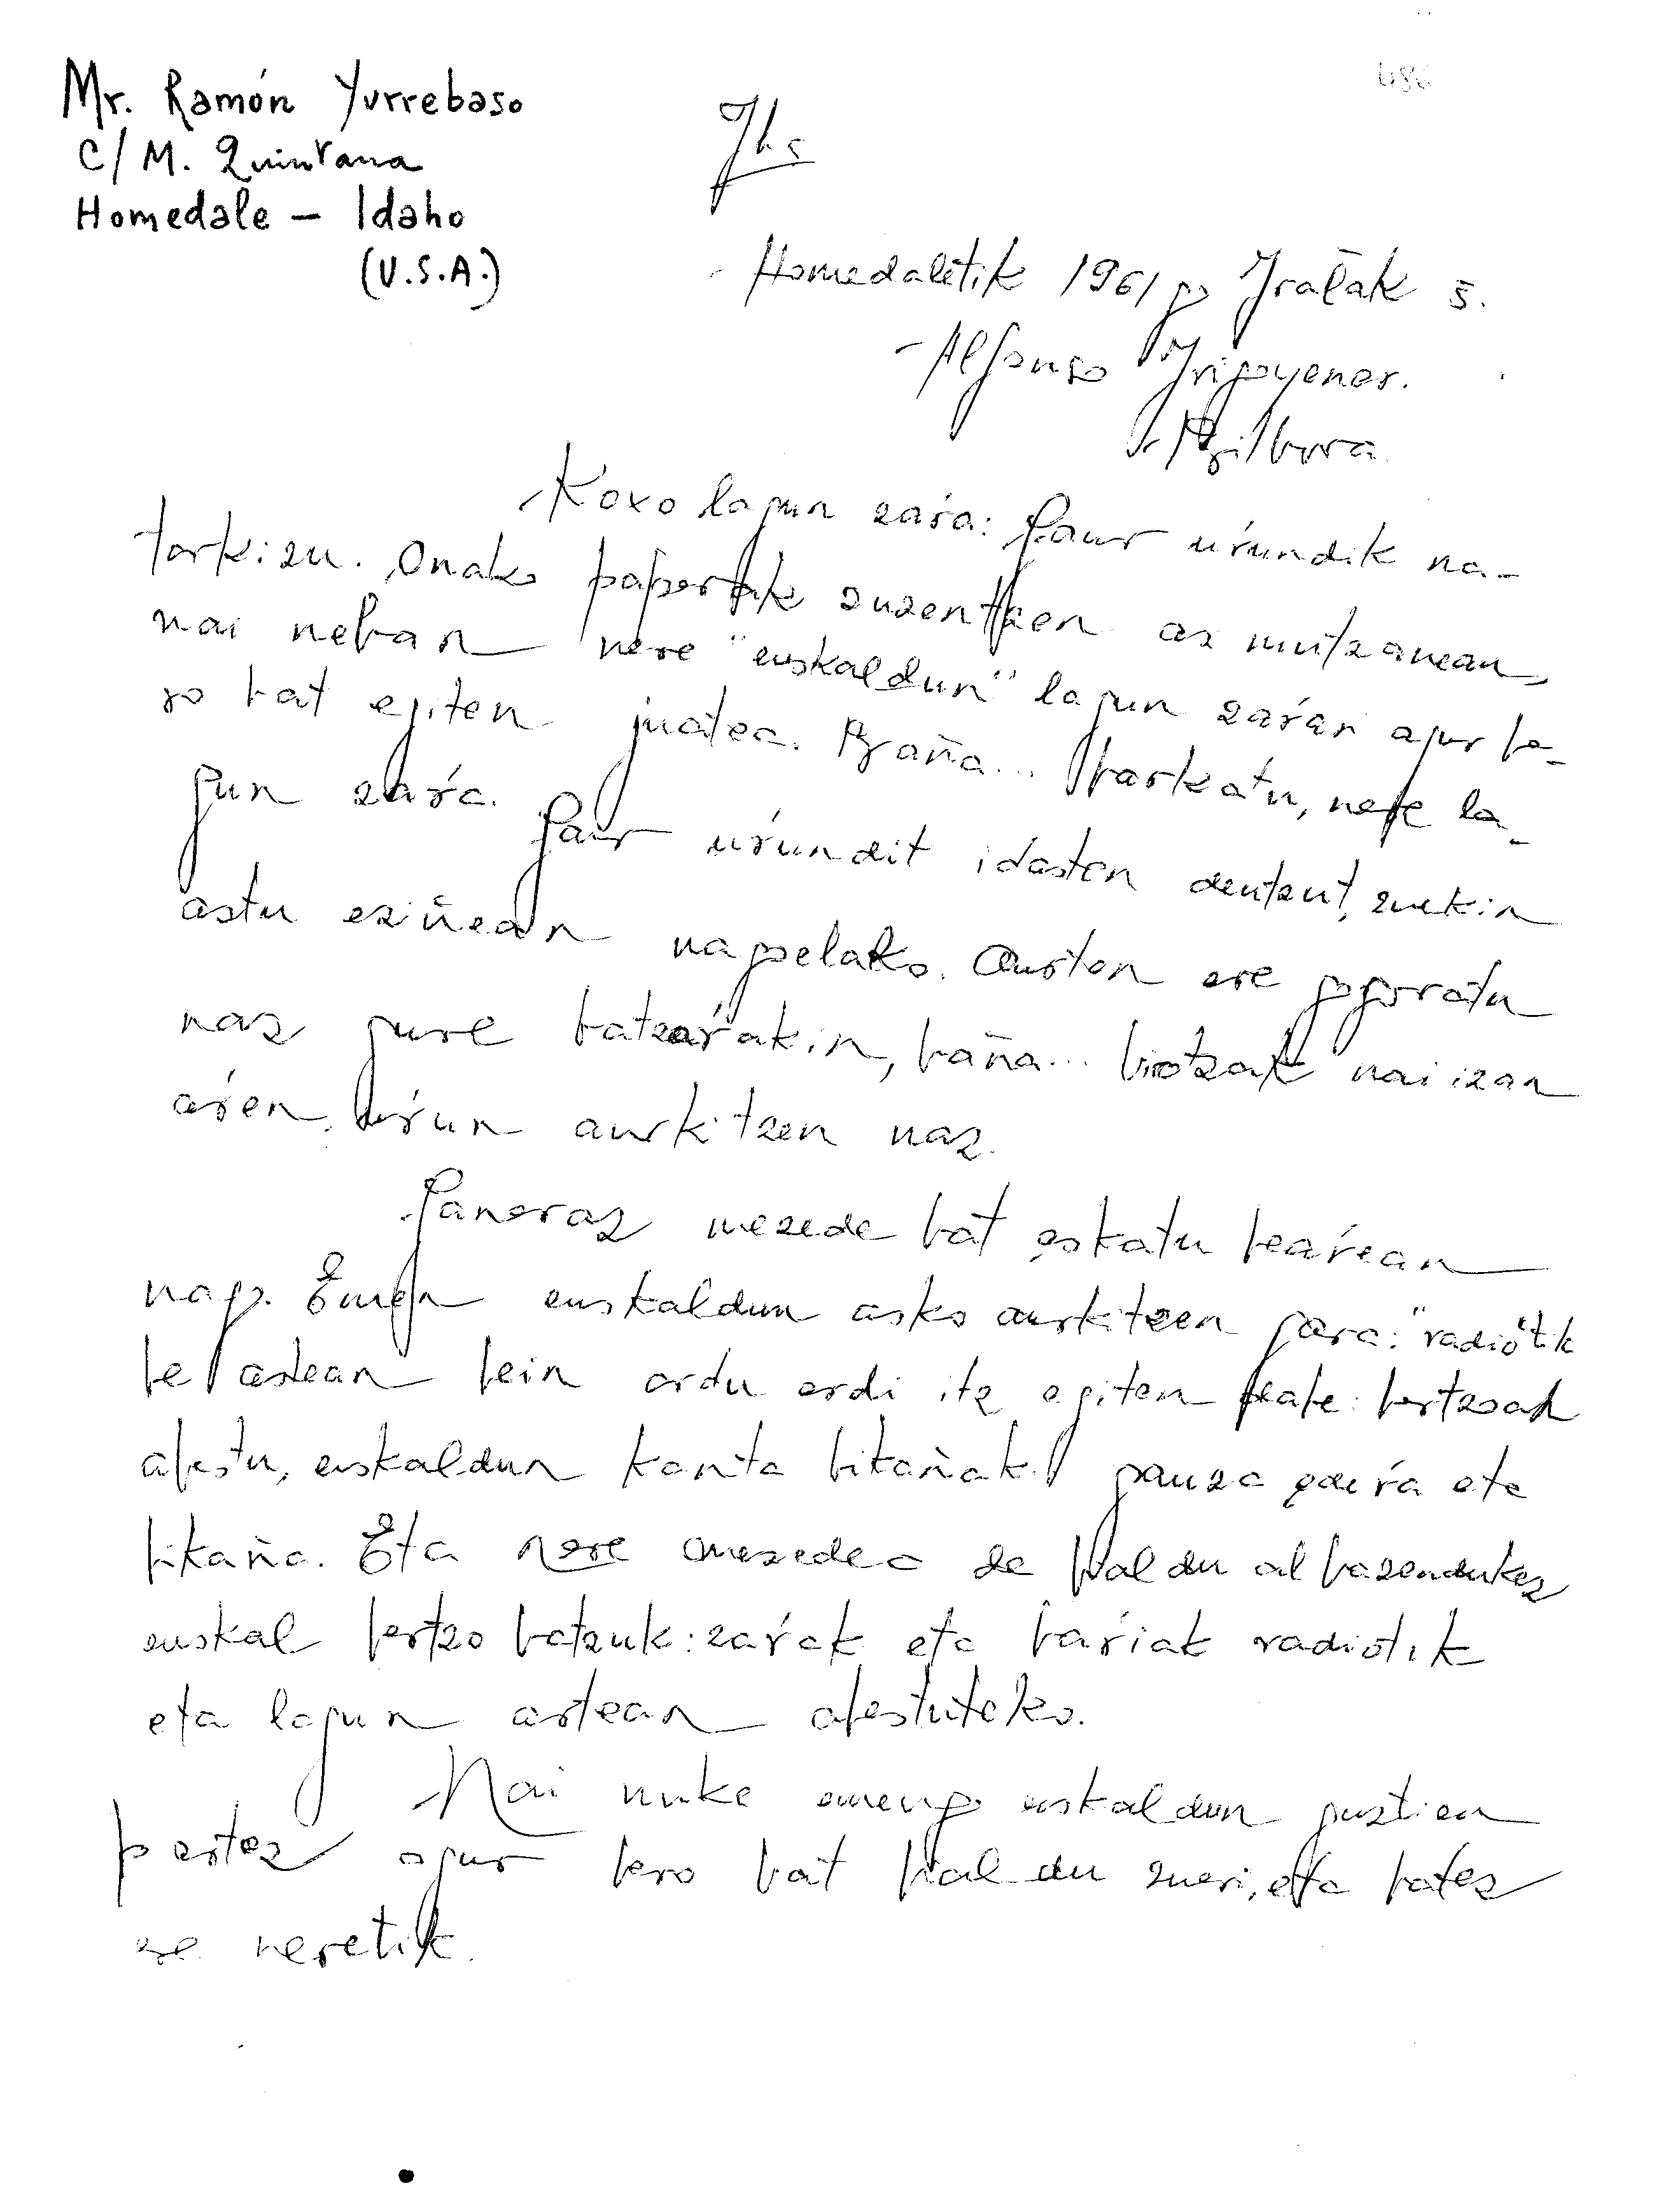 Mr. Ramón Yurrebaso
C/ M. Quintana
Homedale - Idaho
(U.S.A.)
486
Jhs
Homedaletik 1961 go Irailak 5.
Alfonso Irigoyener.
Bilbora
Koxo lagun zaŕa: Gaur uŕundik na-
torkizu. Onako paperak zuzentzen az nintzanean,
nai neban nere "euskaldun" lagun zaŕari agur be-
ro bat egiten juatea. Baña... Parkatu, nere la-
gun zaŕa.
Gaur uŕundit idazten deutzut, zuekin
aztu eziñean nagoelako. Aurten ere gogoratu
naz gure batzaŕakin, baña... biotzak nai izan
aŕen, uŕun aurkitzen naz.
Ganeraz mezede bat eskatu beaŕean
nago. Emen euskaldun asko aurkitzen gara: "radio"tik
be astean bein ordu erdi itz egiten dabe: bertzoak
abestu, euskaldun kanta bikañak! gauza edeŕa eta
bikaña. Eta nere mezedea da bialdu al bazendukez
euskal bertzo batzuk: zaŕak eta baŕiak radiotik
eta lagun artean abestuteko.
Nai nuke emengo euskaldun guztien
partez agur bero bat bialdu zueri, eta batez
ze neretik.